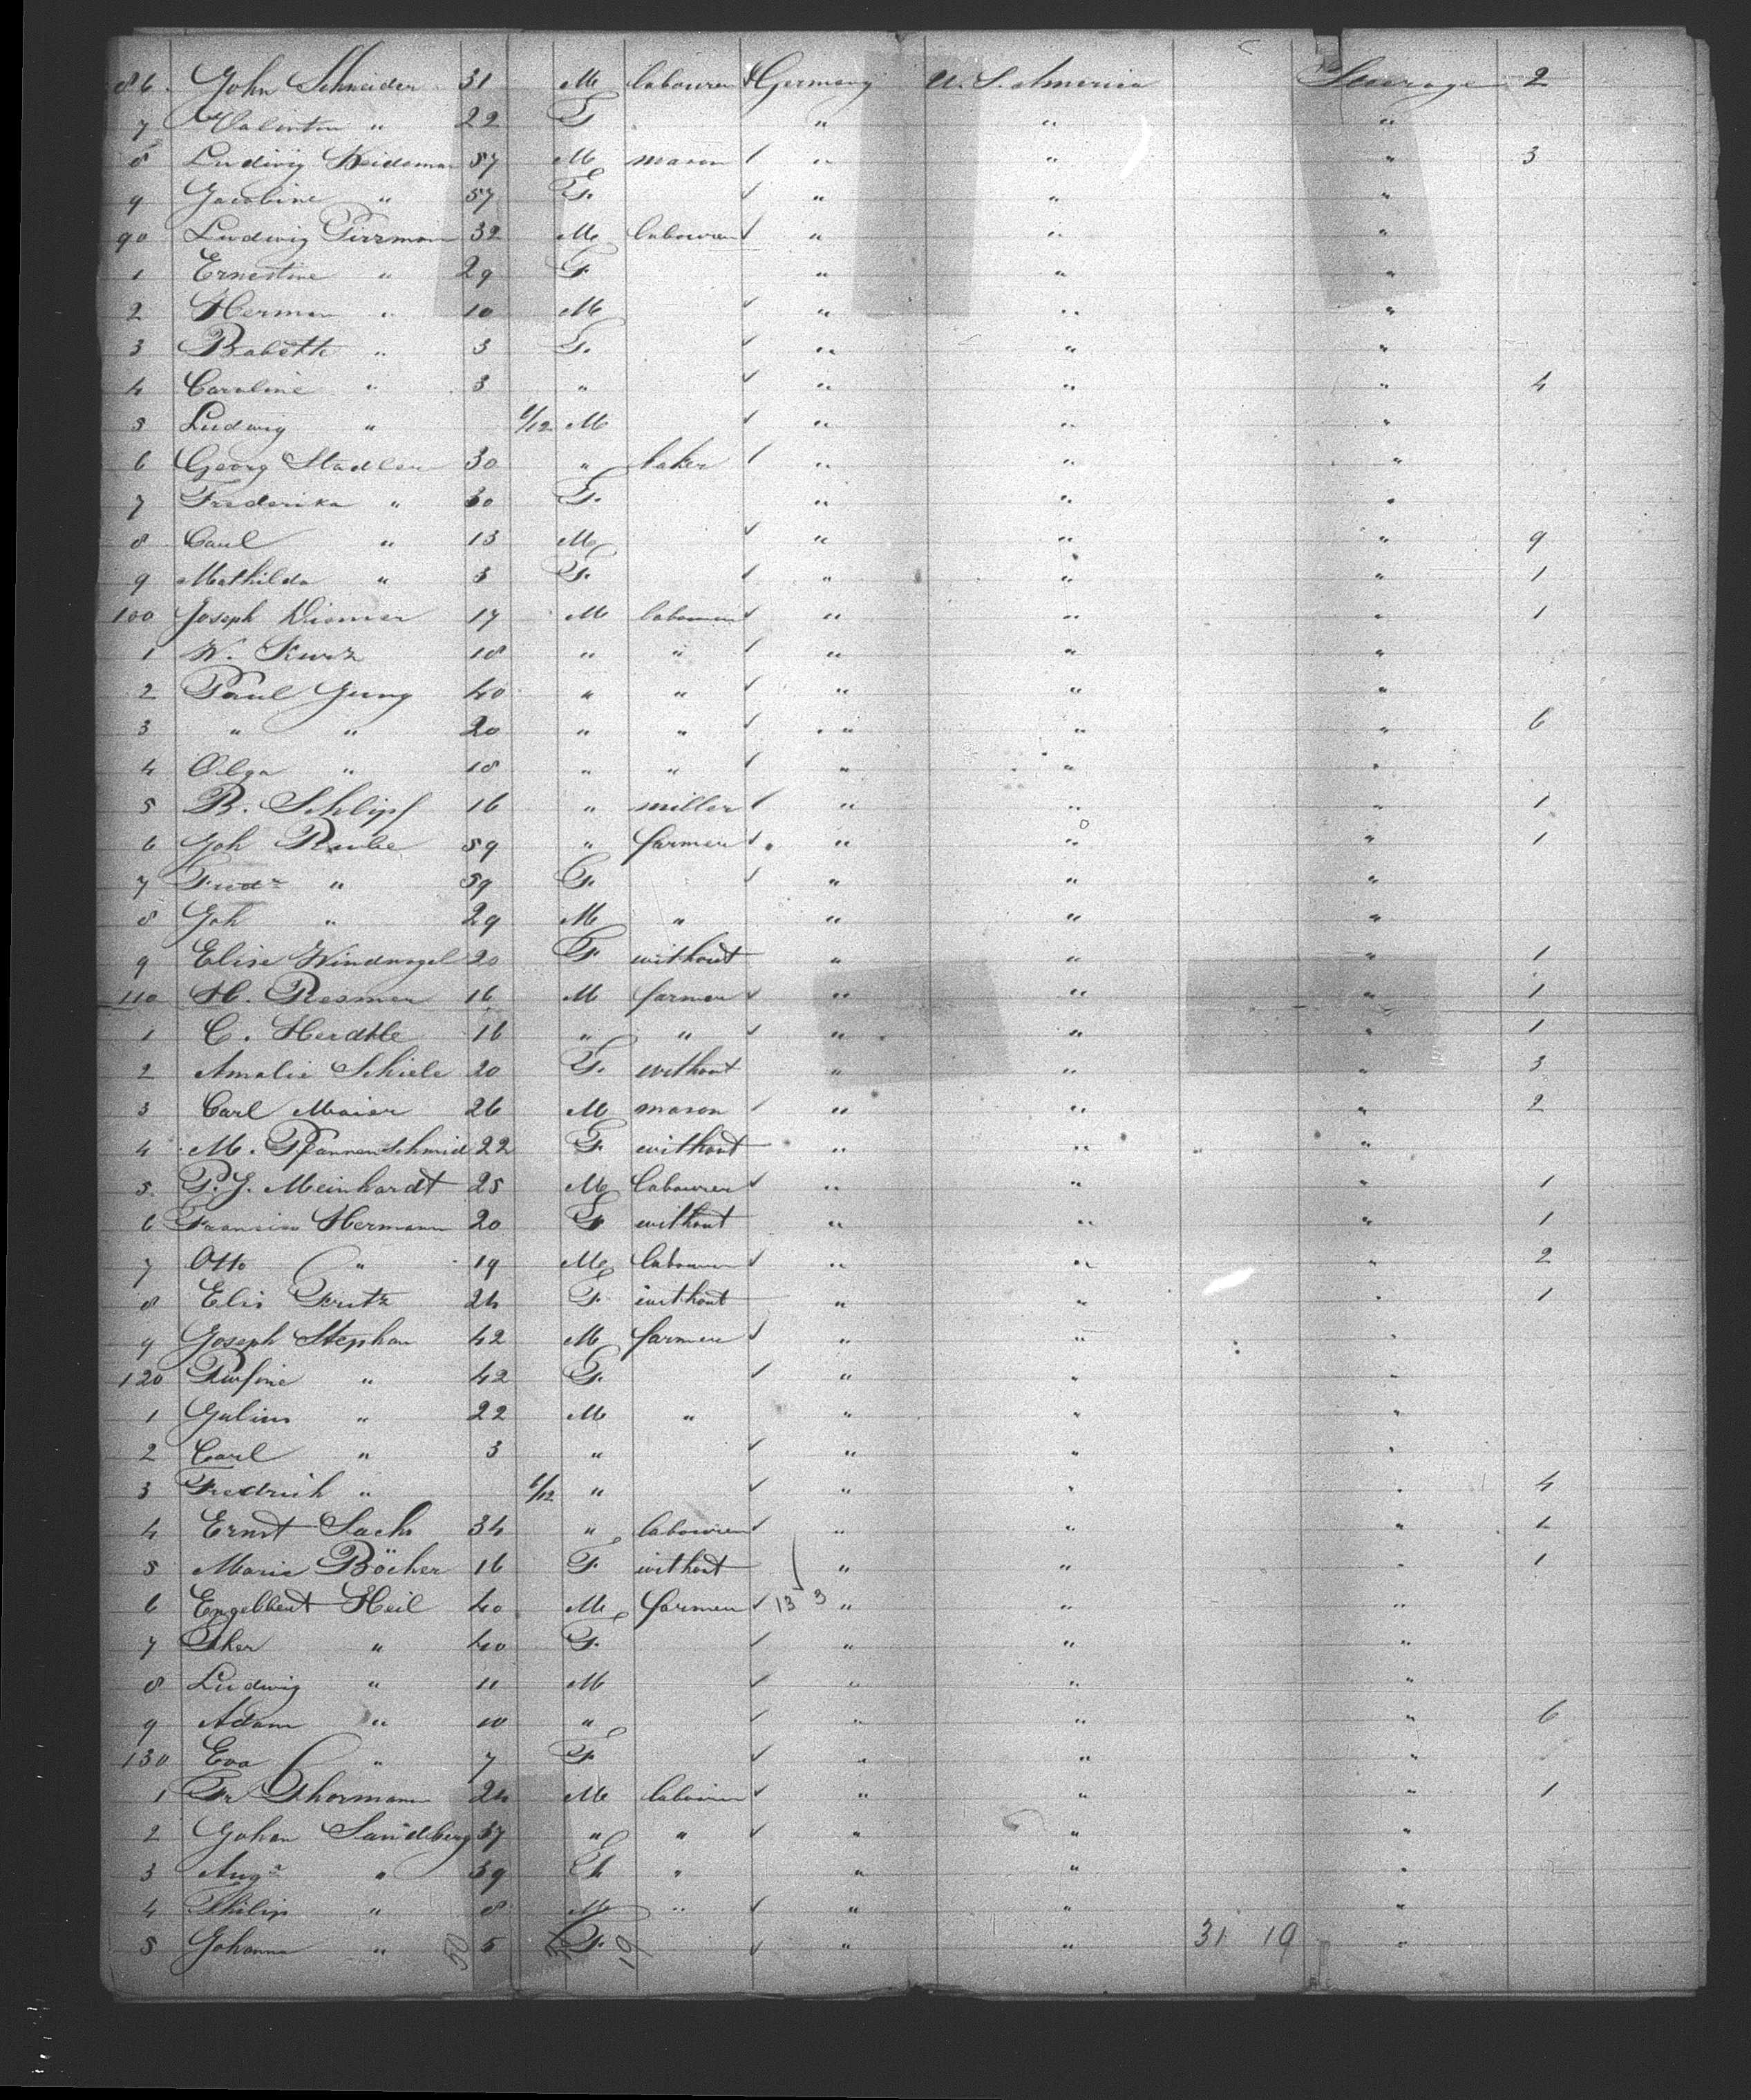 86. John Schneider 31 M labourer Germany U. S. America Steerage 2
7 Valentin " 22 F " " "
8 Ludwig Weideman 57 M mason " " " 3
9 Jacobine " 57 F. " " "
90 Ludwig Pirrman 32 M labourer " " "
1 Ernestine " 29 F. " " "
2 Herman " 10 M " " "
3 Babette " 3 F. " " "
4 Caroline " 3 " " " " 4
5 Ludwig " /12 M " " "
6 Georg Stadler 30 " baker " " "
7 Frederika " 30 F. " " "
8 Carl " 13 M " " " 9
9 Mathilda " 3 F. " " " 1
100 Joseph 17 M labourer " " " 1
1 W. Kurz 18 " " " " "
2 Paul Jung 40 " " " " "
3 " " 20 " " " " " 6
4 Olga " 18 " " " " "
5 B. Schlipf 16 " miller " " " 1
6 Joh Raube 59 " farmer " " " 1
7 Fried " 59 F. " " "
8 Joh " 29 M " " " "
9 Elise Windnagel 20 F without " " " 1
110 H. Resmer 16 M farmer " " " 1
1 C. Herdtle 16 " " " " " 1
2 Amalie Schiele 20 F. without " " " 3
3 Carl Maier 26 M mason " " " 2
4 M. Pfannenschmid 22 F. without " " "
5. P. J. Meinhardt 25 M labourer " " " 1
6 Hermann 20 F without " " " 1
7 Otto " 19 M labourer " " " 2
8 Elis Fritz 24 F without " " " 1
9 Joseph Stephan 42 M farmer " " "
120 Rufine " 42 F. " " "
1 Julius " 22 M " " " "
2 Carl " 3 " " " "
3 Fredrich " /12 " " " " 4
4 Ernst Sachs 34 " labourer " " " 1
5 Marie Böcher 16 F without " " " 1
6 Engelbert Heil 40 M farmer 13 3 " " "
7 " 40 F. " " "
8 Ludwig " 11 M " " "
9 Adam " 10 " " " " 6
130 Eva " 7 F " " "
1 Fr Thormann 24 M labourer " " " 1
2 Johan Sandberg 37 " " " " "
3 Aug " 39 " " " "
4 Philip " 8 M " " " "
5 Johanna " 5 F. " " 31 19 "
50 19